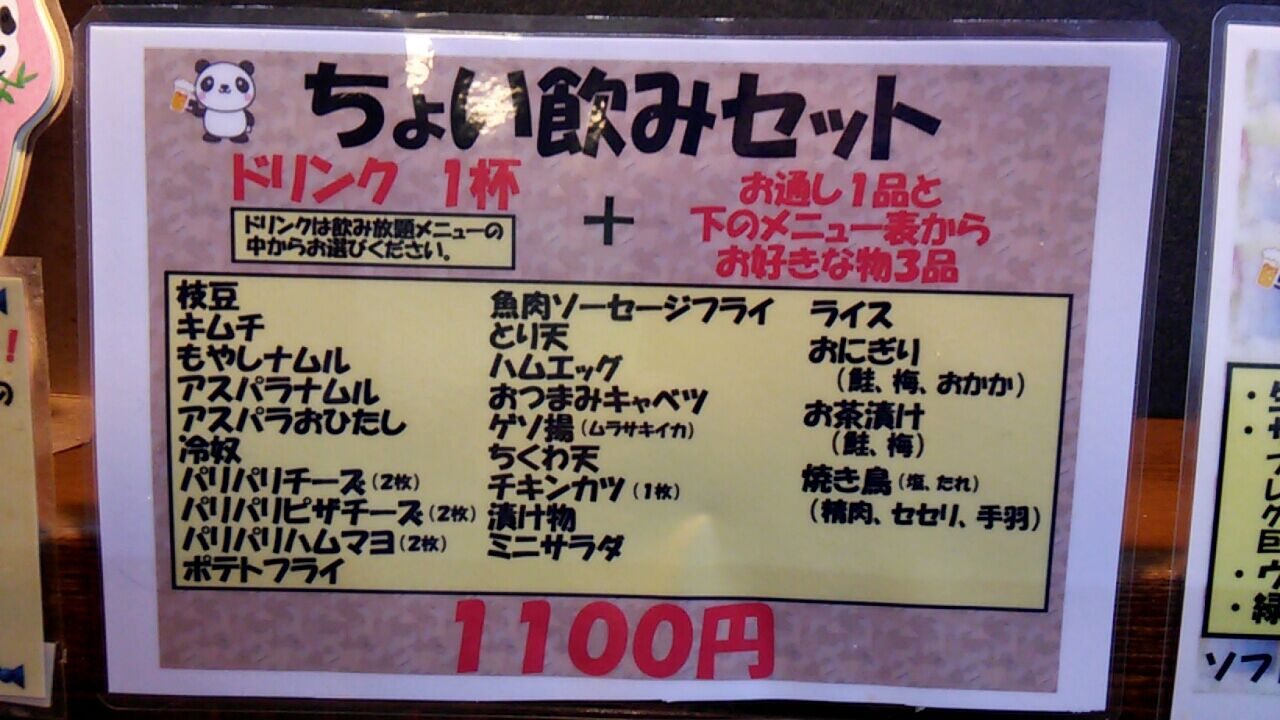 ちょい飲みセット
ドリンク 1杯
ドリンクは飲み放題メニューの
中からお選びください。
+
お通し1品と
下のメニュー表から
お好きな物3品
枝豆
キムチ
もやしナムル
アスパラナムル
アスパラおひたし
冷奴
パリパリチーズ(2枚)
パリパリピザチーズ(2枚)
パリパリハムマヨ(2枚)
ポテトフライ
魚肉ソーセージフライ
とり天
ハムエッグ
おつまみキャベツ
ゲソ揚(ムラサキイカ)
ちくわ天
チキンカツ(1枚)
漬け物
ミニサラダ
ライス
おにぎり
(鮭、梅、おかか)
お茶漬け
(鮭、梅)
焼き鳥(塩、たれ)
(精肉、セセリ、手羽)
1100円
!
の
・ウ
・緑
ソフ